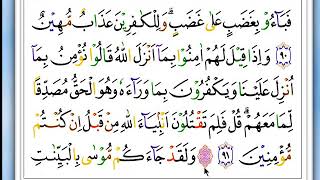 فَبَآءُو بِغَضَبٍ عَلَىٰ غَضَبٍ ۚ وَلِلْكَٰفِرِينَ عَذَابٌ مُّهِينٌ
٩٠ وَإِذَا قِيلَ لَهُمْ ءَامِنُوا۟ بِمَآ أَنزَلَ ٱللَّهُ قَالُوا۟ نُؤْمِنُ بِمَآ
أُنزِلَ عَلَيْنَا وَيَكْفُرُونَ بِمَا وَرَآءَهُۥ وَهُوَ ٱلْحَقُّ مُصَدِّقًا
لِّمَا مَعَهُمْ ۗ قُلْ فَلِمَ تَقْتُلُونَ أَنۢبِيَآءَ ٱللَّهِ مِن قَبْلُ إِن كُنتُم
مُّؤْمِنِينَ ٩١ وَلَقَدْ جَآءَكُم مُّوسَىٰ بِٱلْبَيِّنَٰتِ